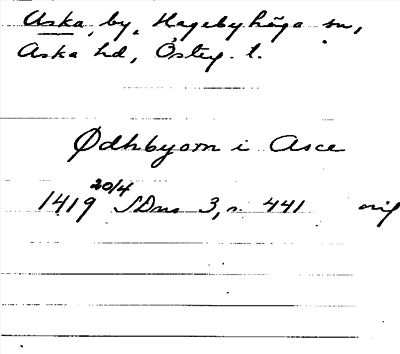 Aska, by, Hagebyhöga sn,
Aska hd, Östeg. l.
Ødhbyorn i Asce
1419 20/4 SDns 3, s. 441 orig